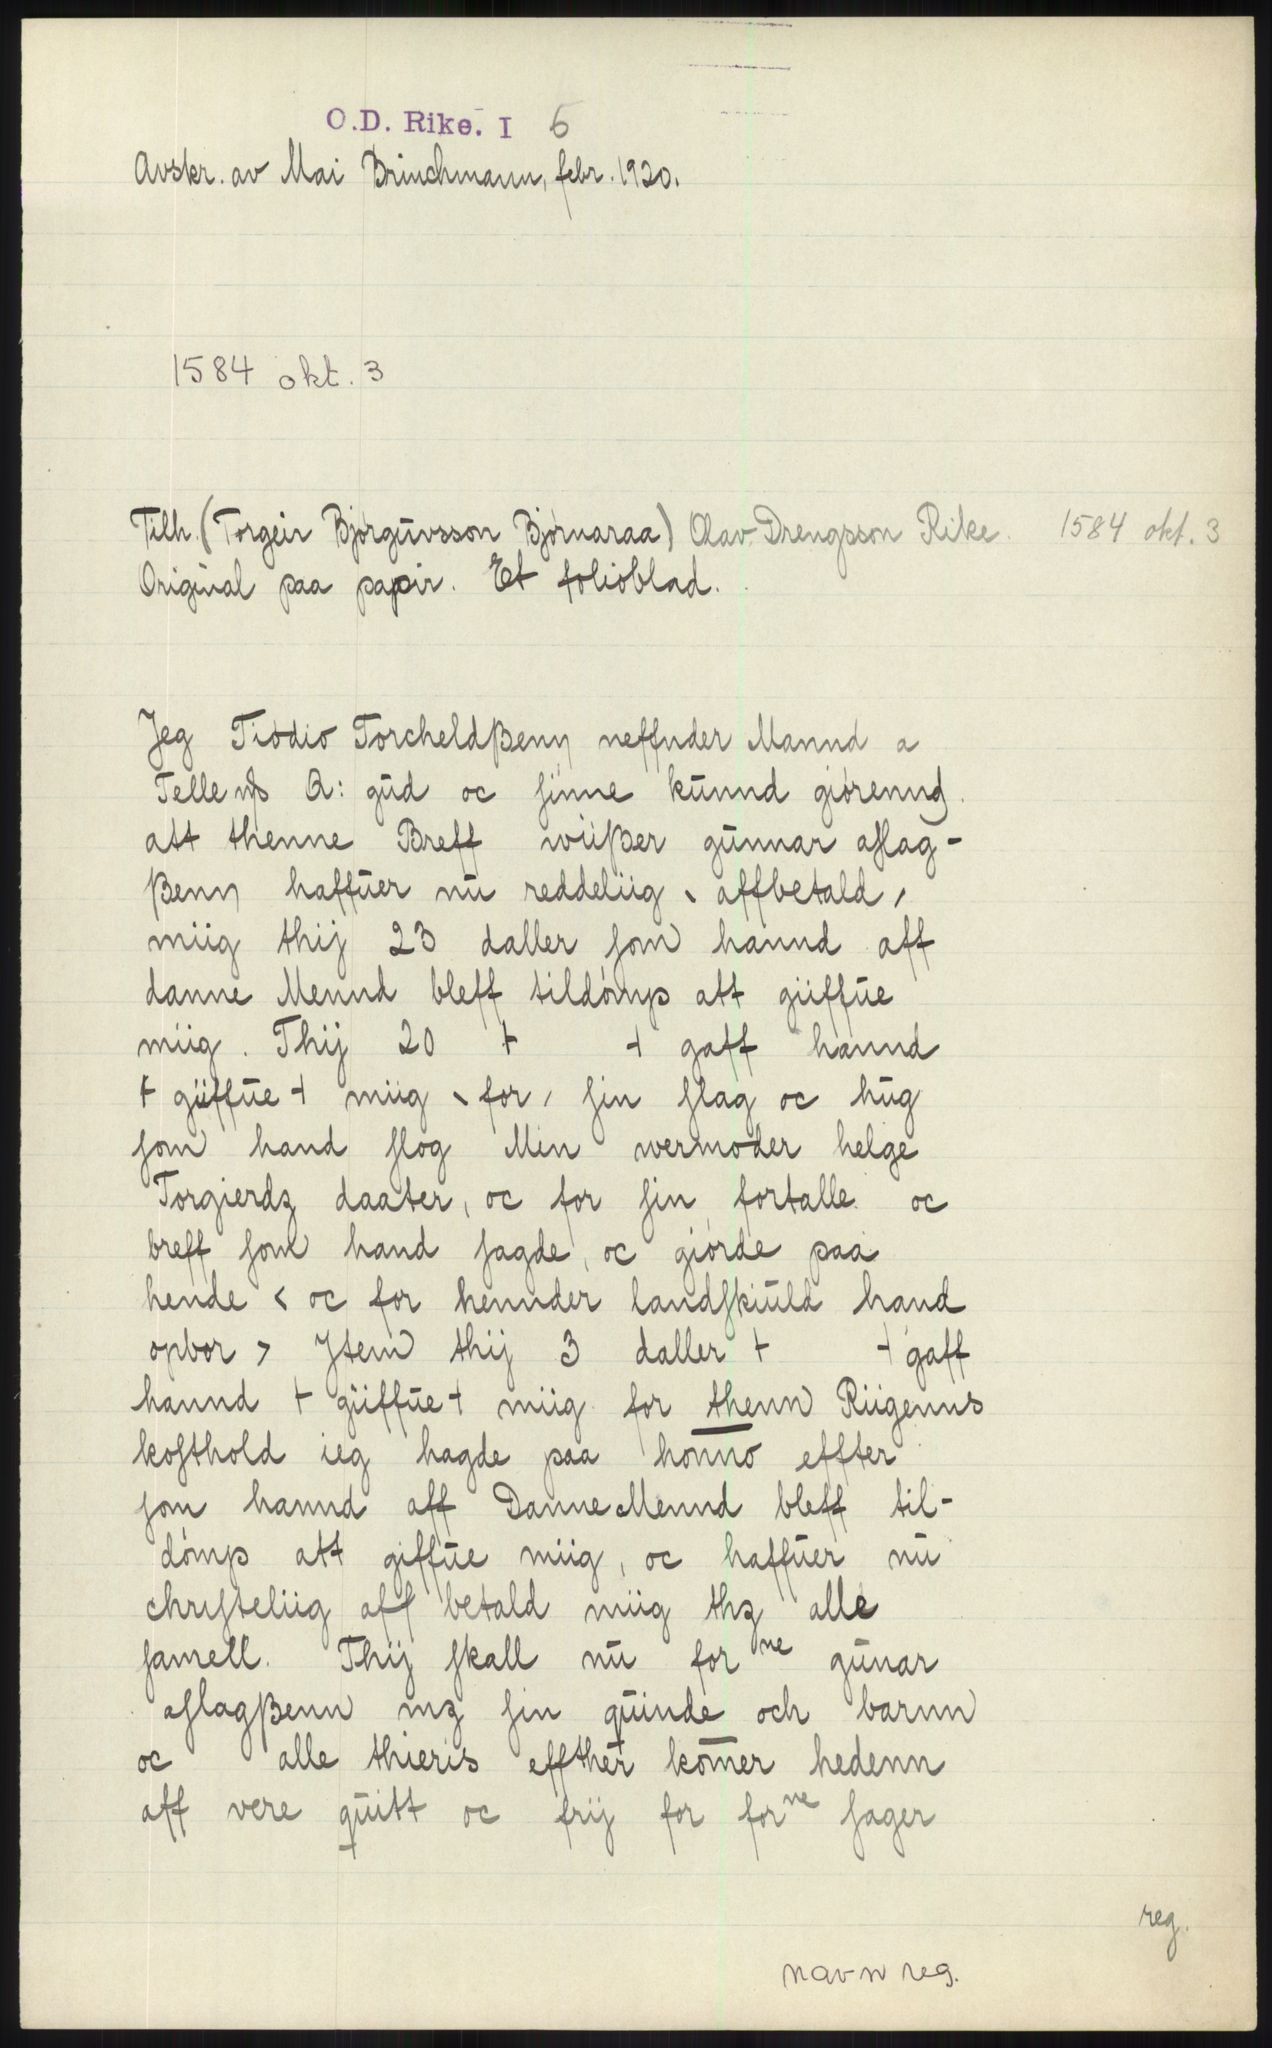 O.D. Rike. I 6
Avskr. av Mai Brinchmann, febr. 1920.
1584 okt. 3
Tilh. (Torgeir Bjørguvsson Bjørnaraa) Olav Drengsson Rike. 1584 okt. 3
Original paa papir. Et folioblad.
Jeg Tiodio Torcheldßenn neffnder Mannd a
Telle A: gud oc ſinne kunnd giørennd
att thenne Breff wiißer gunnar aſlag-
ßenn haffuer nu reddeliig ⸜ affbetald ⸝
miig thij 23 daller ſom hannd aff
danne Mennd bleff tildømp att giiffue
miig. Thij 20 ⊢ ⊣ gaff hannd
⊢ giiffue ⊣ miig ⸜ for ⸝ ſin ſlag oc hug
ſom hand ſlog Min wermoder helge
Torgierdz daater, oc for ſin fortalle oc
breff ſom hand ſagde, oc giørde paa
hende < oc for hennder landſkiuld hand
opbor > Jtem thij 3 daller ⊢ ⊣ gaff
hannd ⊢ giiffue ⊣ miig for thenn Riigenns
koſthold ieg hagde paa honno effter
ſom hannd aff Danne Mennd bleff til-
dømp att giffue miig, oc haffuer nu
chryſteliig aff betald miig thz alle
ſamell. Thij ſkall nu for ne gunar
aſlagßenn mz ſin quinde och barnn
oc alle thieris effther komer hedenn
aff vere quitt oc frij for for ne ſager
reg.
navn reg.